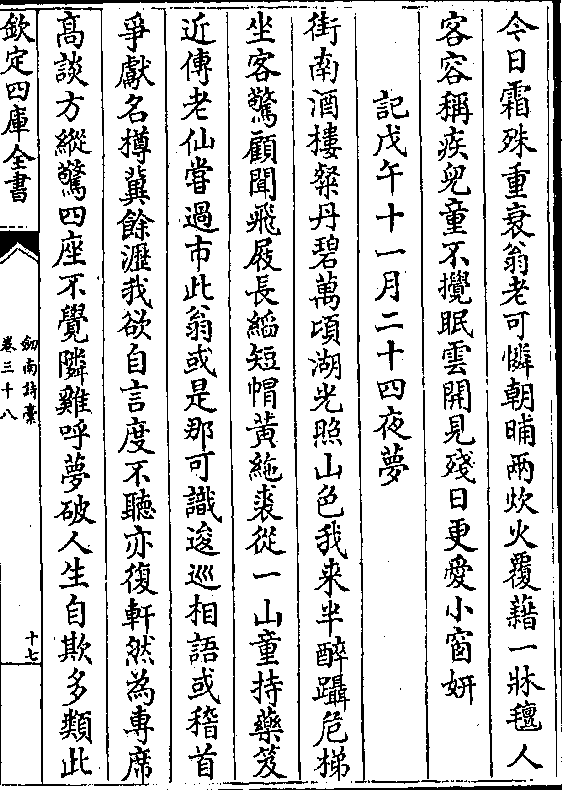 今日霜殊重衰翁老可憐朝晡兩炊火覆藉一牀氊人
客容稱疾兒童不攪眠雲開見殘日更愛小窗妍
記戊午十一月二十四夜夢
街南酒樓粲丹碧萬頃湖光照山色我來半醉躡危梯
坐客驚顧聞飛屐長縚短帽黃絁裘從一山童持藥笈
近傳老仙嘗過市此翁或是那可識逡巡相語或稽首
爭獻名樽冀餘瀝我欲自言度不聽亦復軒然為專席
高談方縱驚四座不覺隣雞呼夢破人生自欺多類此
欽定四庫全書
劒南詩槀
卷三十八
十七